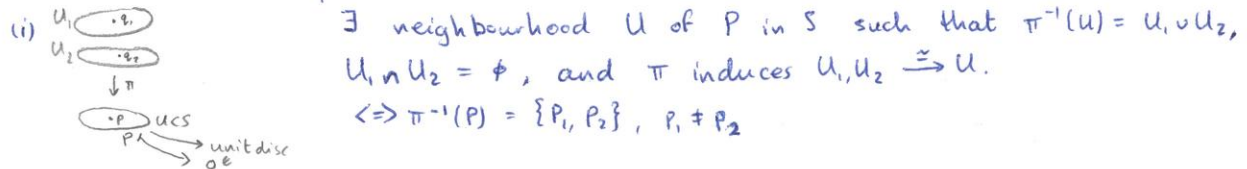 (i) U₁ ·q₁
U₂ ·q₂
↓π
·P U⊂S
P
unit disc
0 ∈
∃ neighbourhood U of P in S such that π⁻¹(U) = U₁ ∪ U₂,
U₁ ∩ U₂ = ϕ, and π induces U₁, U₂ ≅→ U.
<=> π⁻¹(P) = {P₁, P₂}, P₁ ≠ P₂